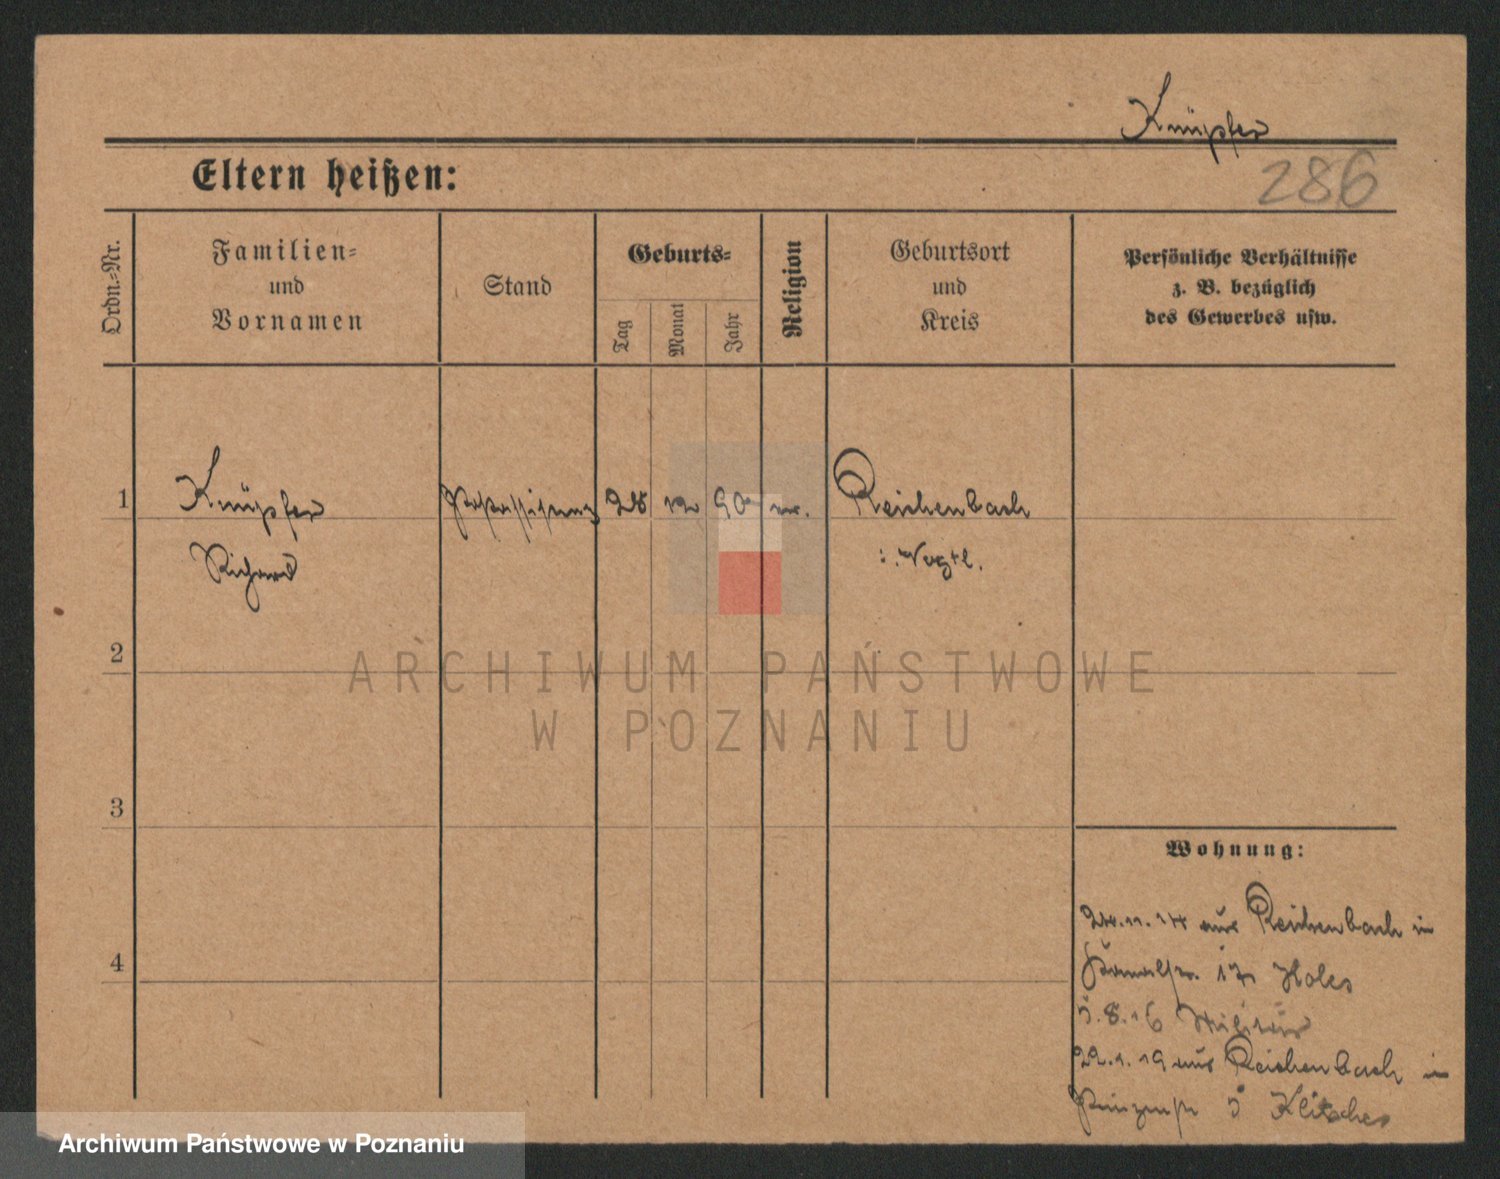 Knüpfer
286
Eltern heißen:
Ordn.-Nr.
Familien- und Vornamen
Stand
Geburts-
Tag
Monat
Jahr
Religion
Geburtsort und Kreis
Persönliche Verhältnisse
z. B. bezüglich
des Gewerbes usw.
1 Knüpfer 28 90 Reichenbach
Richard i. Vogtl.
2
ARCHIWUM PAŃSTWOWE
W POZNANIU
3
Wohnung:
24.11.14 aus Reichenbach in
4
5.8.16 Militär
22.1.19 aus Reichenbach in
Prinzenstr 5
Archiwum Państwowe w Poznaniu